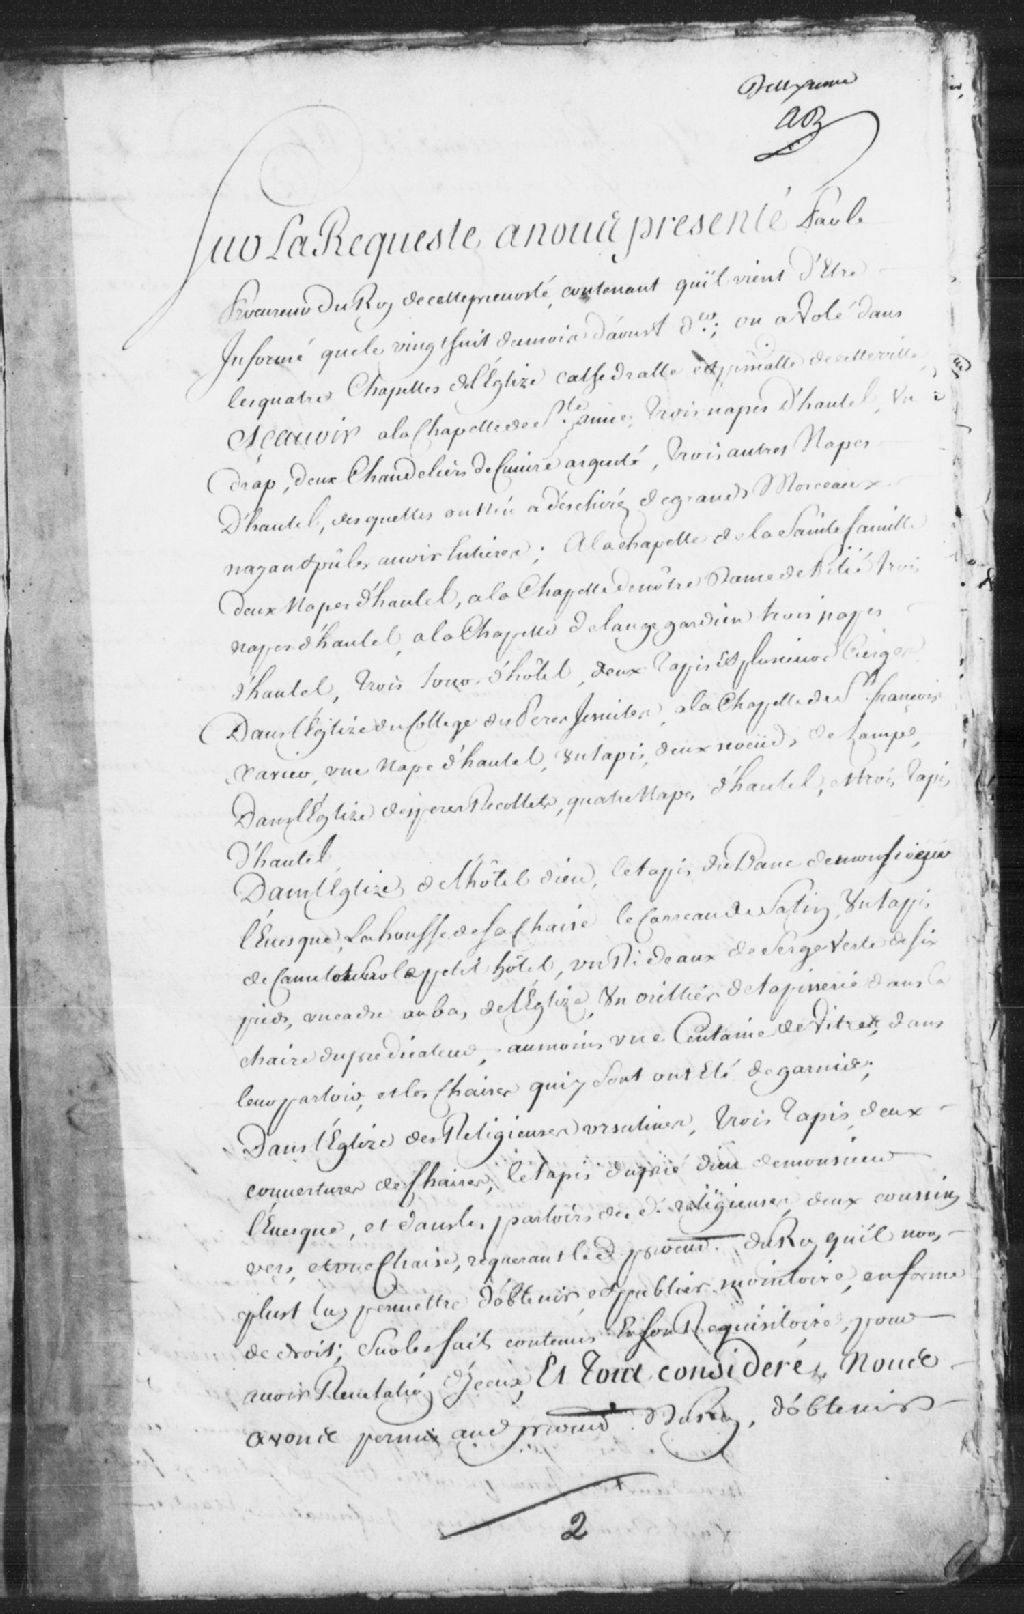 AB
Sur La Requeste anous presenté par le
Procureur Du Roy de cette prevosté, contenant quil vient D'Etre
Informé que le vingthuit du mois d'aoust d.er; on a Volé dans
les quatre Chapelles de l'Eglize cathedralle et parroissialle de cette ville
Sçauoir a la Chapelle de S.te anne, trois napes D'hautel, Un
drap, deux Chandeliers de Cuiure argenté, trois autres Napes
D'hautel, desquelles on a déschiré de grands Morceaux
nayant pû les auoir Entieres; A la chapelle de la Sainte famille
deux Napes d'hautel, a la Chapelle de nôtre Dame de Pitié trois
napes d'hautel, a la Chapelle de lange gardien trois napes
d'hautel, trois tours d'hôtel, deux tapis Et plusieurs Cierges
Dans l'Eglize du College des Peres Jesuites, a la Chapelle de S.t françois
Xavier, vne Nape d'hautel, Un tapis, deux noeuds de Lampe,
Dans l'Eglize des peres Recollets, quatre Napes d'hautel, et trois Tapis
d'hautel
Dans l'Eglize de l'hôtel dieu, le tapis du Banc de monseigneur
l'Euesque, La housse de sa Chaise le Carreau de Satin, Un tapis
de Camelot sur le petit hôtel, vn Rideaux de Serge Verte de six
pieds, vn cadre au bas de l'Eglize, Un oreiller de tapisserie dans la
chaire du predicateur, au moins vne Centaine de Vitres, dans
leur parloir, et les Chaises qui y sont ont Eté degarnies;
Dans l'Eglize des Religieuses vrsulines, trois Tapis, deux
couuertures de Chaises, le tapis du prié dieu de monsieur
l'Euesque, et dans les parloirs des d. religieuses, deux coussins
vers, et vne Chaise, requerant led. procur. du Roy quil nous
plust luy permettre d'obtenir et publier monitoire, en forme
de droit, Sur les faits contenus En son Requisitoire, pour
auoir Reuelation d'Iceux, Et Tout consideré, Nous
avons permis aud. procur. Du Roy, d'obtenir
2